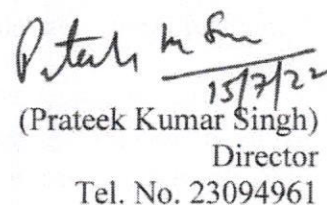 15/7/22
(Prateek Kumar Singh)
Director
Tel. No. 23094961